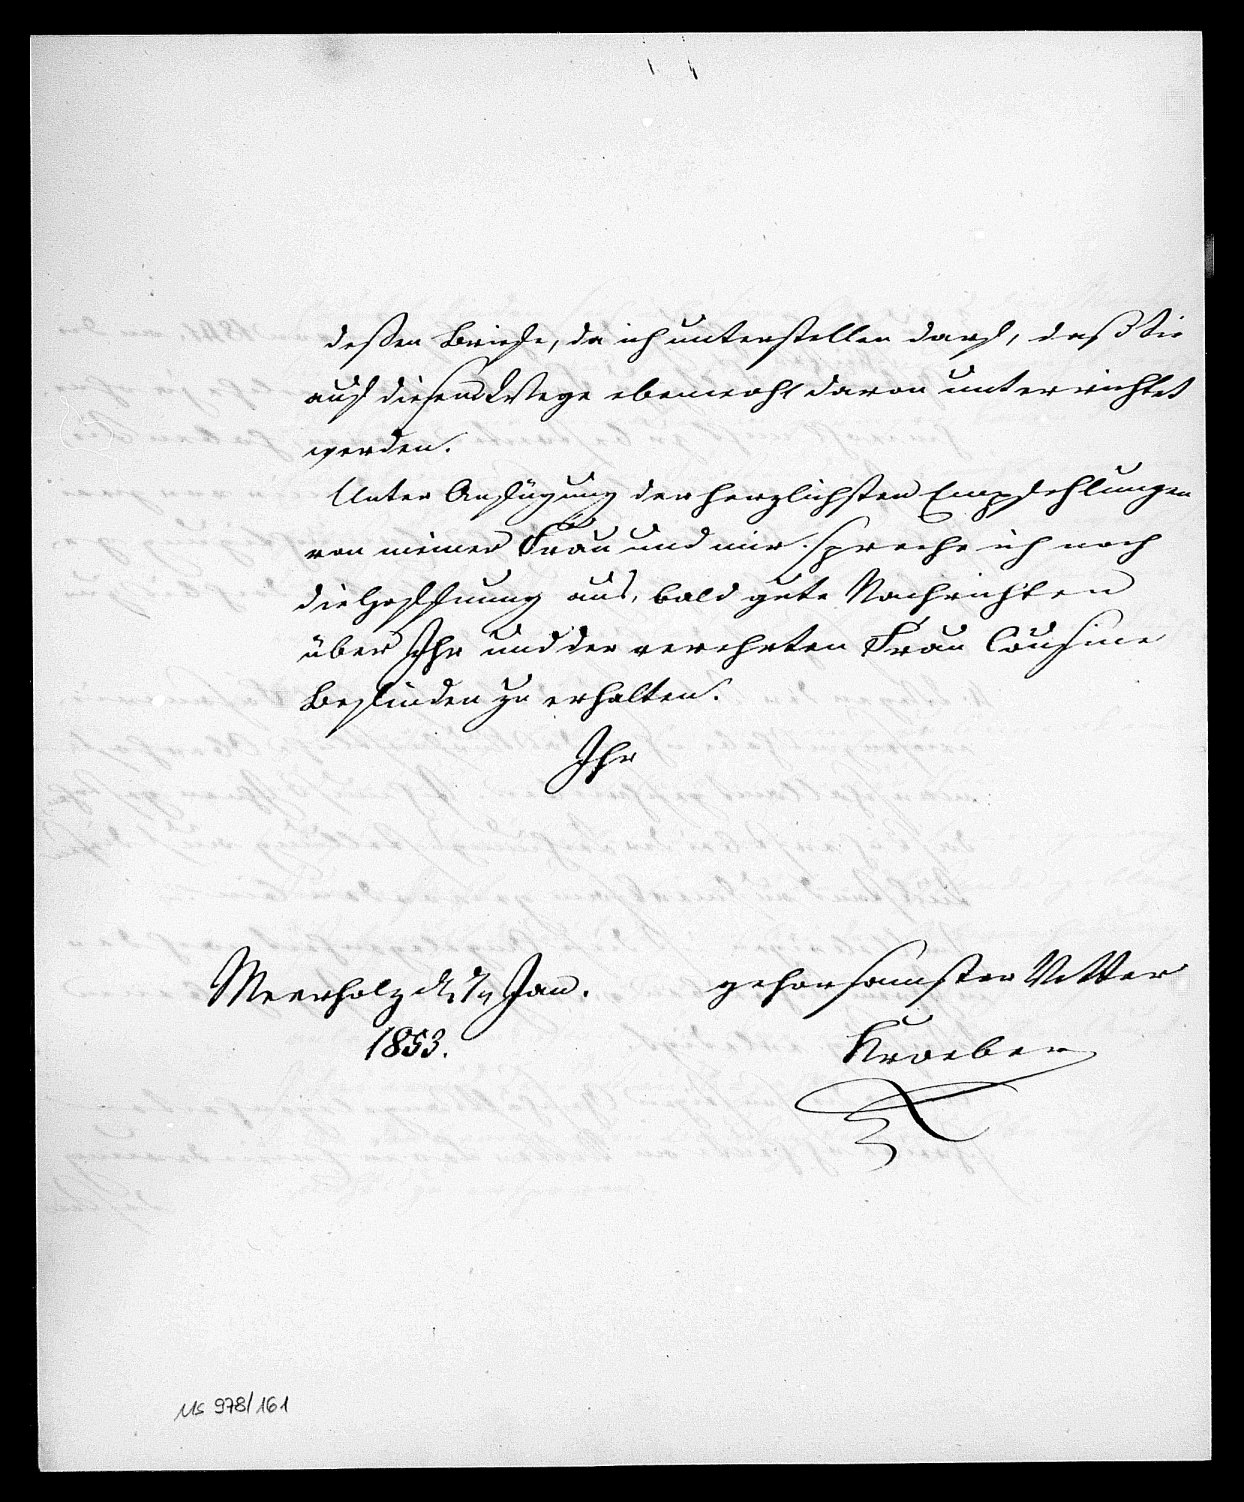 deßen Briefe, da ich unterstellen darf, daß Sie
auf diesem Wege ebenwohl davon unterrichtet
werden.
Unter Anfügung der herzlichsten Empfehlungen
von meiner Frau und mir spreche ich noch
die Hoffnung aus, bald gute Nachrichten
über Ihr und der verehrten Frau Cousine
Befinden zu erhalten.
Ihr
Meerholz Jan. gehorsamster Vetter
1853. Kroeber
Ms 978/161